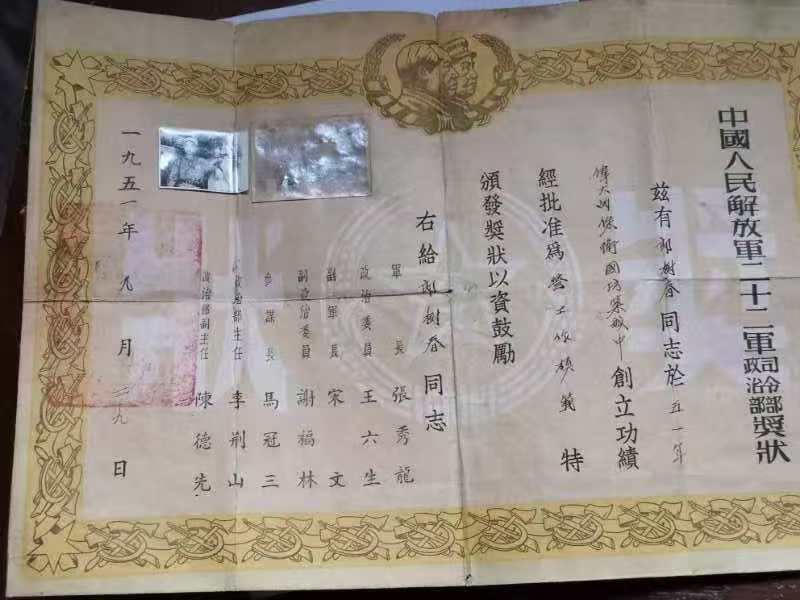 中國人民解放軍二十二軍司令部政治部獎狀
茲有郎樹春同志於五一年
偉大的保衛國防築城中創立功績
經批准爲營工作模範 特
頒發獎狀以資鼓勵
右給郎樹春同志
軍長張秀龍
政治委員王六生
副軍長宋文
副政治委員謝福林
參謀長馬冠三
政治部主任李荆山
政治部副主任陳德先
一九五一年九月二九日
獎狀